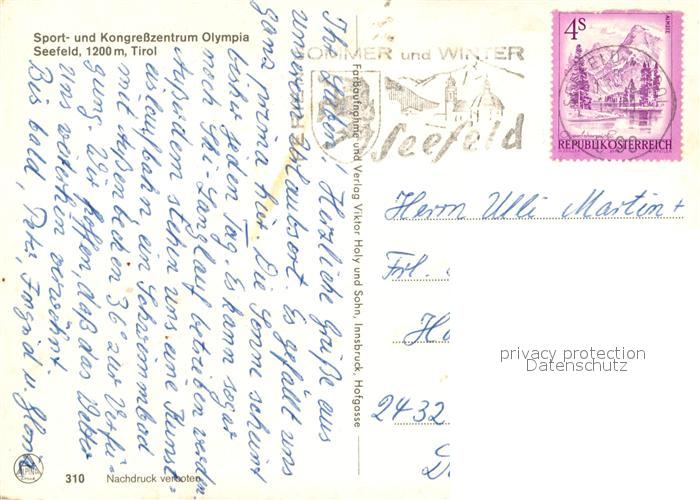 Sport- und Kongreßzentrum Olympia
Seefeld, 1200 m, Tirol
SOMMER und WINTER
Seefeld
4S
ALMSEE
REPUBLIK ÖSTERREICH
Ihr Lieben! Herzliche Grüße aus
unserem Urlaubsort. Es gefällt uns
ganz prima hier. Die Sonne scheint
jeden Tag. Es kann sogar
noch Ski-Langlauf betrieben werden
Außerdem stehen uns eine Kunst-
eislaufbahn ein Schwimmbad
mit Außenbecken 36° zur Verfü-
gung. Wir hoffen, daß das Wetter
uns weiterhin verwöhnt.
Bis bald, Peter, Ingrid u.
Farbaufnahme und Verlag Viktor Holy und Sohn, Innsbruck, Hofgasse
Herrn Ulli Martin +
Frl.
2432
privacy protection
Datenschutz
ALPINA
310 Nachdruck verboten